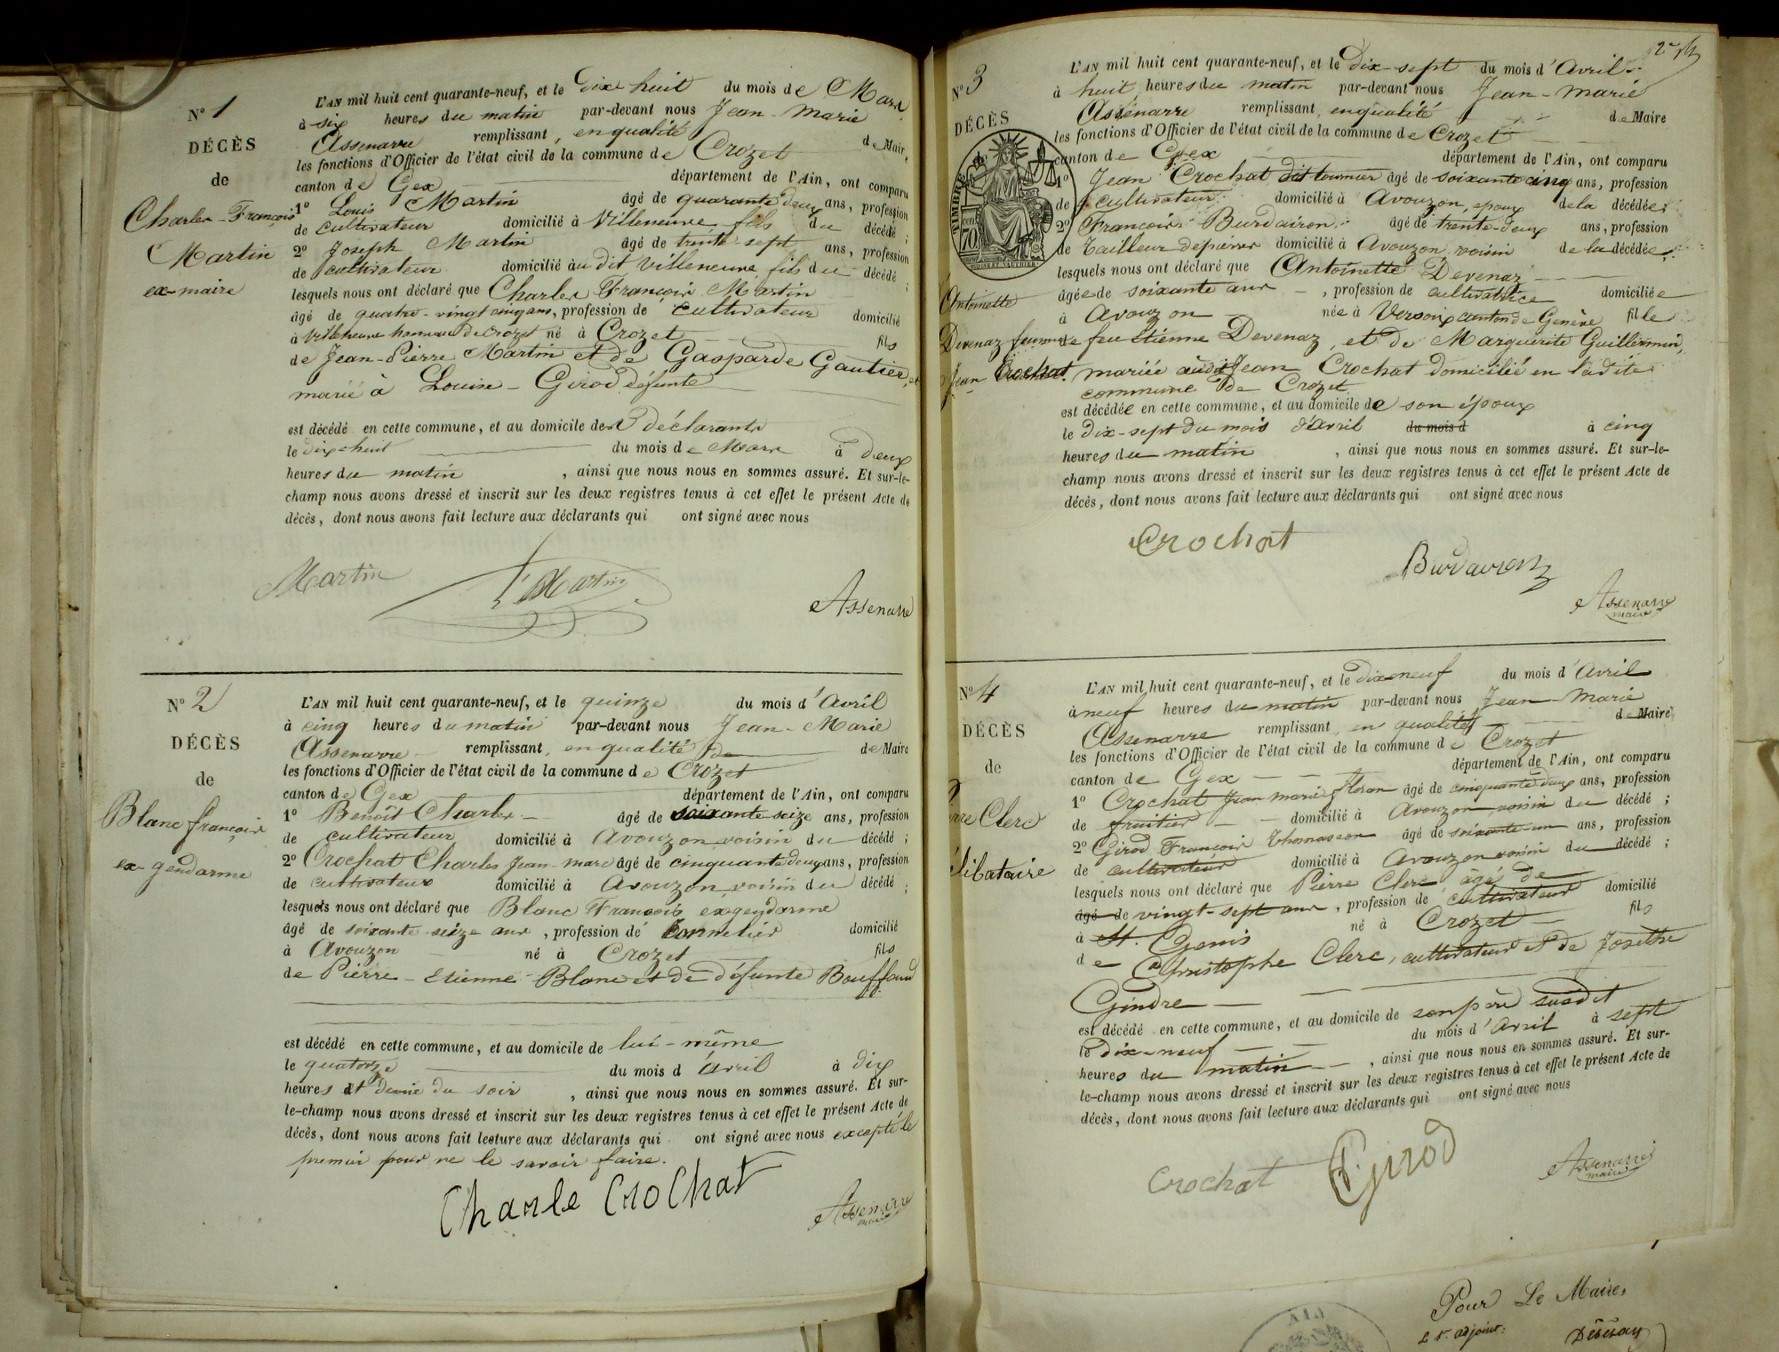 N° 1
DÉCÈS
de
Charles-François
Martin
ex-maire
L'AN mil huit cent quarante-neuf, et le dix huit du mois de Mars,
à six heures du matin par-devant nous Jean-Marie
Assenarre remplissant, en qualité de Maire,
les fonctions d'Officier de l'état civil de la commune de Crozet
canton de Gex département de l'Ain, ont comparu
1° Louis Martin âgé de quarante deux ans, profession
de cultivateur domicilié à Villeneuve fils du décédé ;
2° Joseph Martin âgé de trente-sept ans, profession
de cultivateur domicilié au dit Villeneuve fils du décédé ;
lesquels nous ont déclaré que Charles François Martin
âgé de quatre-vingt cinq ans, profession de cultivateur domicilié
à Villeneuve hameau de Crozet né à Crozet fils
de Jean-Pierre Martin et de Gasparde Gautier, et
marié à Louise-Girod défunte
est décédé en cette commune, et au domicile des déclarants
le dix-huit du mois de Mars à deux
heures du matin, ainsi que nous nous en sommes assuré. Et sur-le-
champ nous avons dressé et inscrit sur les deux registres tenus à cet effet le présent Acte de
décès, dont nous avons fait lecture aux déclarants qui ont signé avec nous
Martin Martin Assenarre
N° 2
DÉCÈS
de
Blanc françois
ex-gendarme
L'AN mil huit cent quarante-neuf, et le quinze du mois d'Avril
à cinq heures du matin par-devant nous Jean-Marie
Assenarre remplissant, en qualité de de Maire
les fonctions d'Officier de l'état civil de la commune de Crozet
canton de Gex département de l'Ain, ont comparu
1° Benoît Charles âgé de soixante seize ans, profession
de cultivateur domicilié à Avouzon voisin du décédé ;
2° Crochat Charles Jean-marc âgé de cinquante deux ans, profession
de cultivateur domicilié à Avouzon voisin du décédé ;
lesquels nous ont déclaré que Blanc François exgendarme
âgé de soixante-seize ans, profession de tonnelier domicilié
à Avouzon né à Crozet fils
de Pierre-Etienne Blanc et de défunte Bouffand
est décédé en cette commune, et au domicile de lui-même
le quatorze du mois d'avril à dix
heures et demie du soir, ainsi que nous nous en sommes assuré. Et sur-
le-champ nous avons dressé et inscrit sur les deux registres tenus à cet effet le présent Acte de
décès, dont nous avons fait lecture aux déclarants qui ont signé avec nous excepté le
premier pour ne le savoir faire.
Charle Crochat Assenarre
maire
2e
N° 3
DÉCÈS
TIMBRE
70
Antoinette
Devenaz femme
Jean Crochat
L'AN mil huit cent quarante-neuf, et le Dix-sept du mois d'Avril
à huit heures du matin par-devant nous Jean-Marie
Assenarre remplissant, en qualité de Maire
les fonctions d'Officier de l'état civil de la commune de Crozet
canton de Gex département de l'Ain, ont comparu
1° Jean Crochat dit tournier âgé de soixante cinq ans, profession
de cultivateur domicilié à Avouzon, époux de la décédée ;
2° François Burdairon âgé de trente-deux ans, profession
de tailleur de pierres domicilié à Avouzon, voisin de la décédée ;
lesquels nous ont déclaré que Antoinette Devenaz
âgée de soixante ans, profession de cultivatrice domiciliée
à Avouzon née à Versoix canton de Genève fille
de feu Etienne Devenaz, et de Marguerite Guillermin,
mariée audit Jean Crochat domicilié en ladite
commune de Crozet
est décédée en cette commune, et au domicile de son époux
le dix-sept du mois d'avril du mois d à cinq
heures du matin, ainsi que nous nous en sommes assuré. Et sur-le-
champ nous avons dressé et inscrit sur les deux registres tenus à cet effet le présent Acte de
décès, dont nous avons fait lecture aux déclarants qui ont signé avec nous
Crochat
Burdairon
Assenarre
maire
N° 4
DÉCÈS
de
Clerc
libataire
L'AN mil huit cent quarante-neuf, et le dix-neuf du mois d'Avril
à neuf heures du matin par-devant nous Jean Marie
Assenarre remplissant, en qualité de Maire
les fonctions d'Officier de l'état civil de la commune de Crozet
canton de Gex département de l'Ain, ont comparu
1° Crochat Jean marie âgé de cinquante deux ans, profession
de fruitier domicilié à Avouzon, voisin du décédé ;
2° Girod François Thomasson âgé de soixante un ans, profession
de cultivateur domicilié à Avouzon voisin du décédé ;
lesquels nous ont déclaré que Pierre Clerc âgé de
âgé de vingt-sept ans, profession de cultivateur domicilié
à St. Genis né à Crozet fils
de Christophe Clerc, cultivateur et de Josethe
Gindre
est décédé en cette commune, et au domicile de son père susdit
le dix-neuf du mois d'Avril à sept
heures du matin, ainsi que nous nous en sommes assuré. Et sur-
le-champ nous avons dressé et inscrit sur les deux registres tenus à cet effet le présent Acte de
décès, dont nous avons fait lecture aux déclarants qui ont signé avec nous
Crochat Girod Assenarre
maire
Pour Le Maire,
adjoint:
AIN